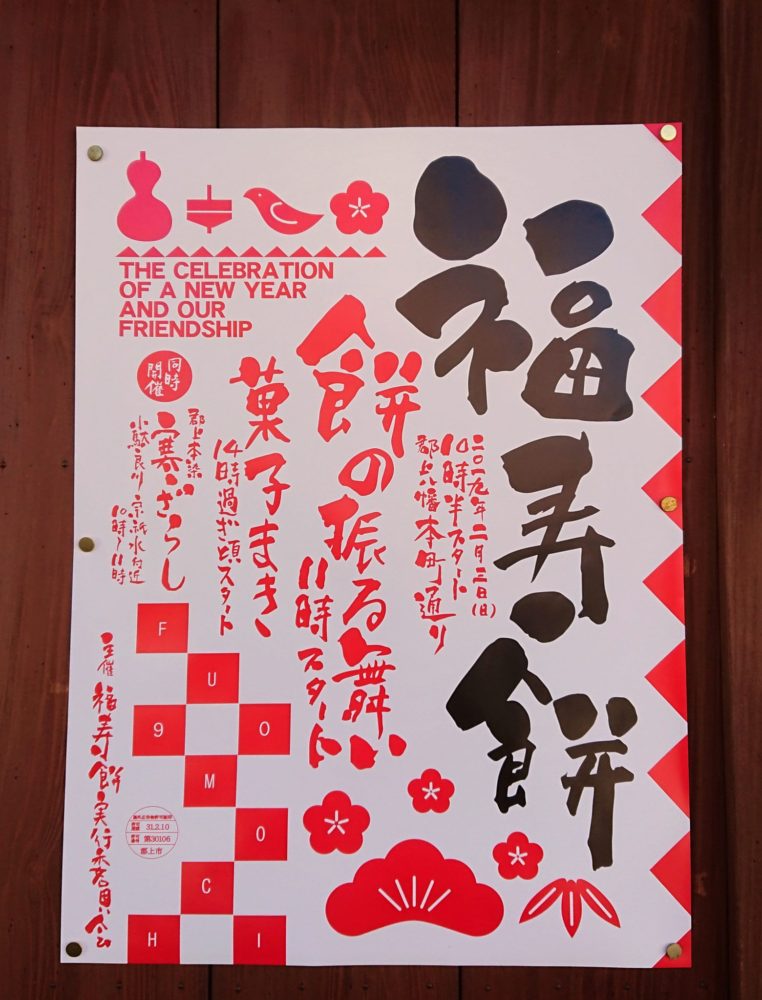 福寿餅
二〇一九年二月三日(日)
10時半スタート
郡上八幡本町通り
餅の振る舞い
11時スタート
菓子まき
14時過ぎ頃スタート
THE CELEBRATION
OF A NEW YEAR
AND OUR
FRIENDSHIP
同時
開催
郡上本染
寒ざらし
小駄良川 宗祇水付近
10時〜11時
F
U
9 O
M
O
C
H I
主催 福寿餅実行委員会
31.2.10
第30106
郡上市